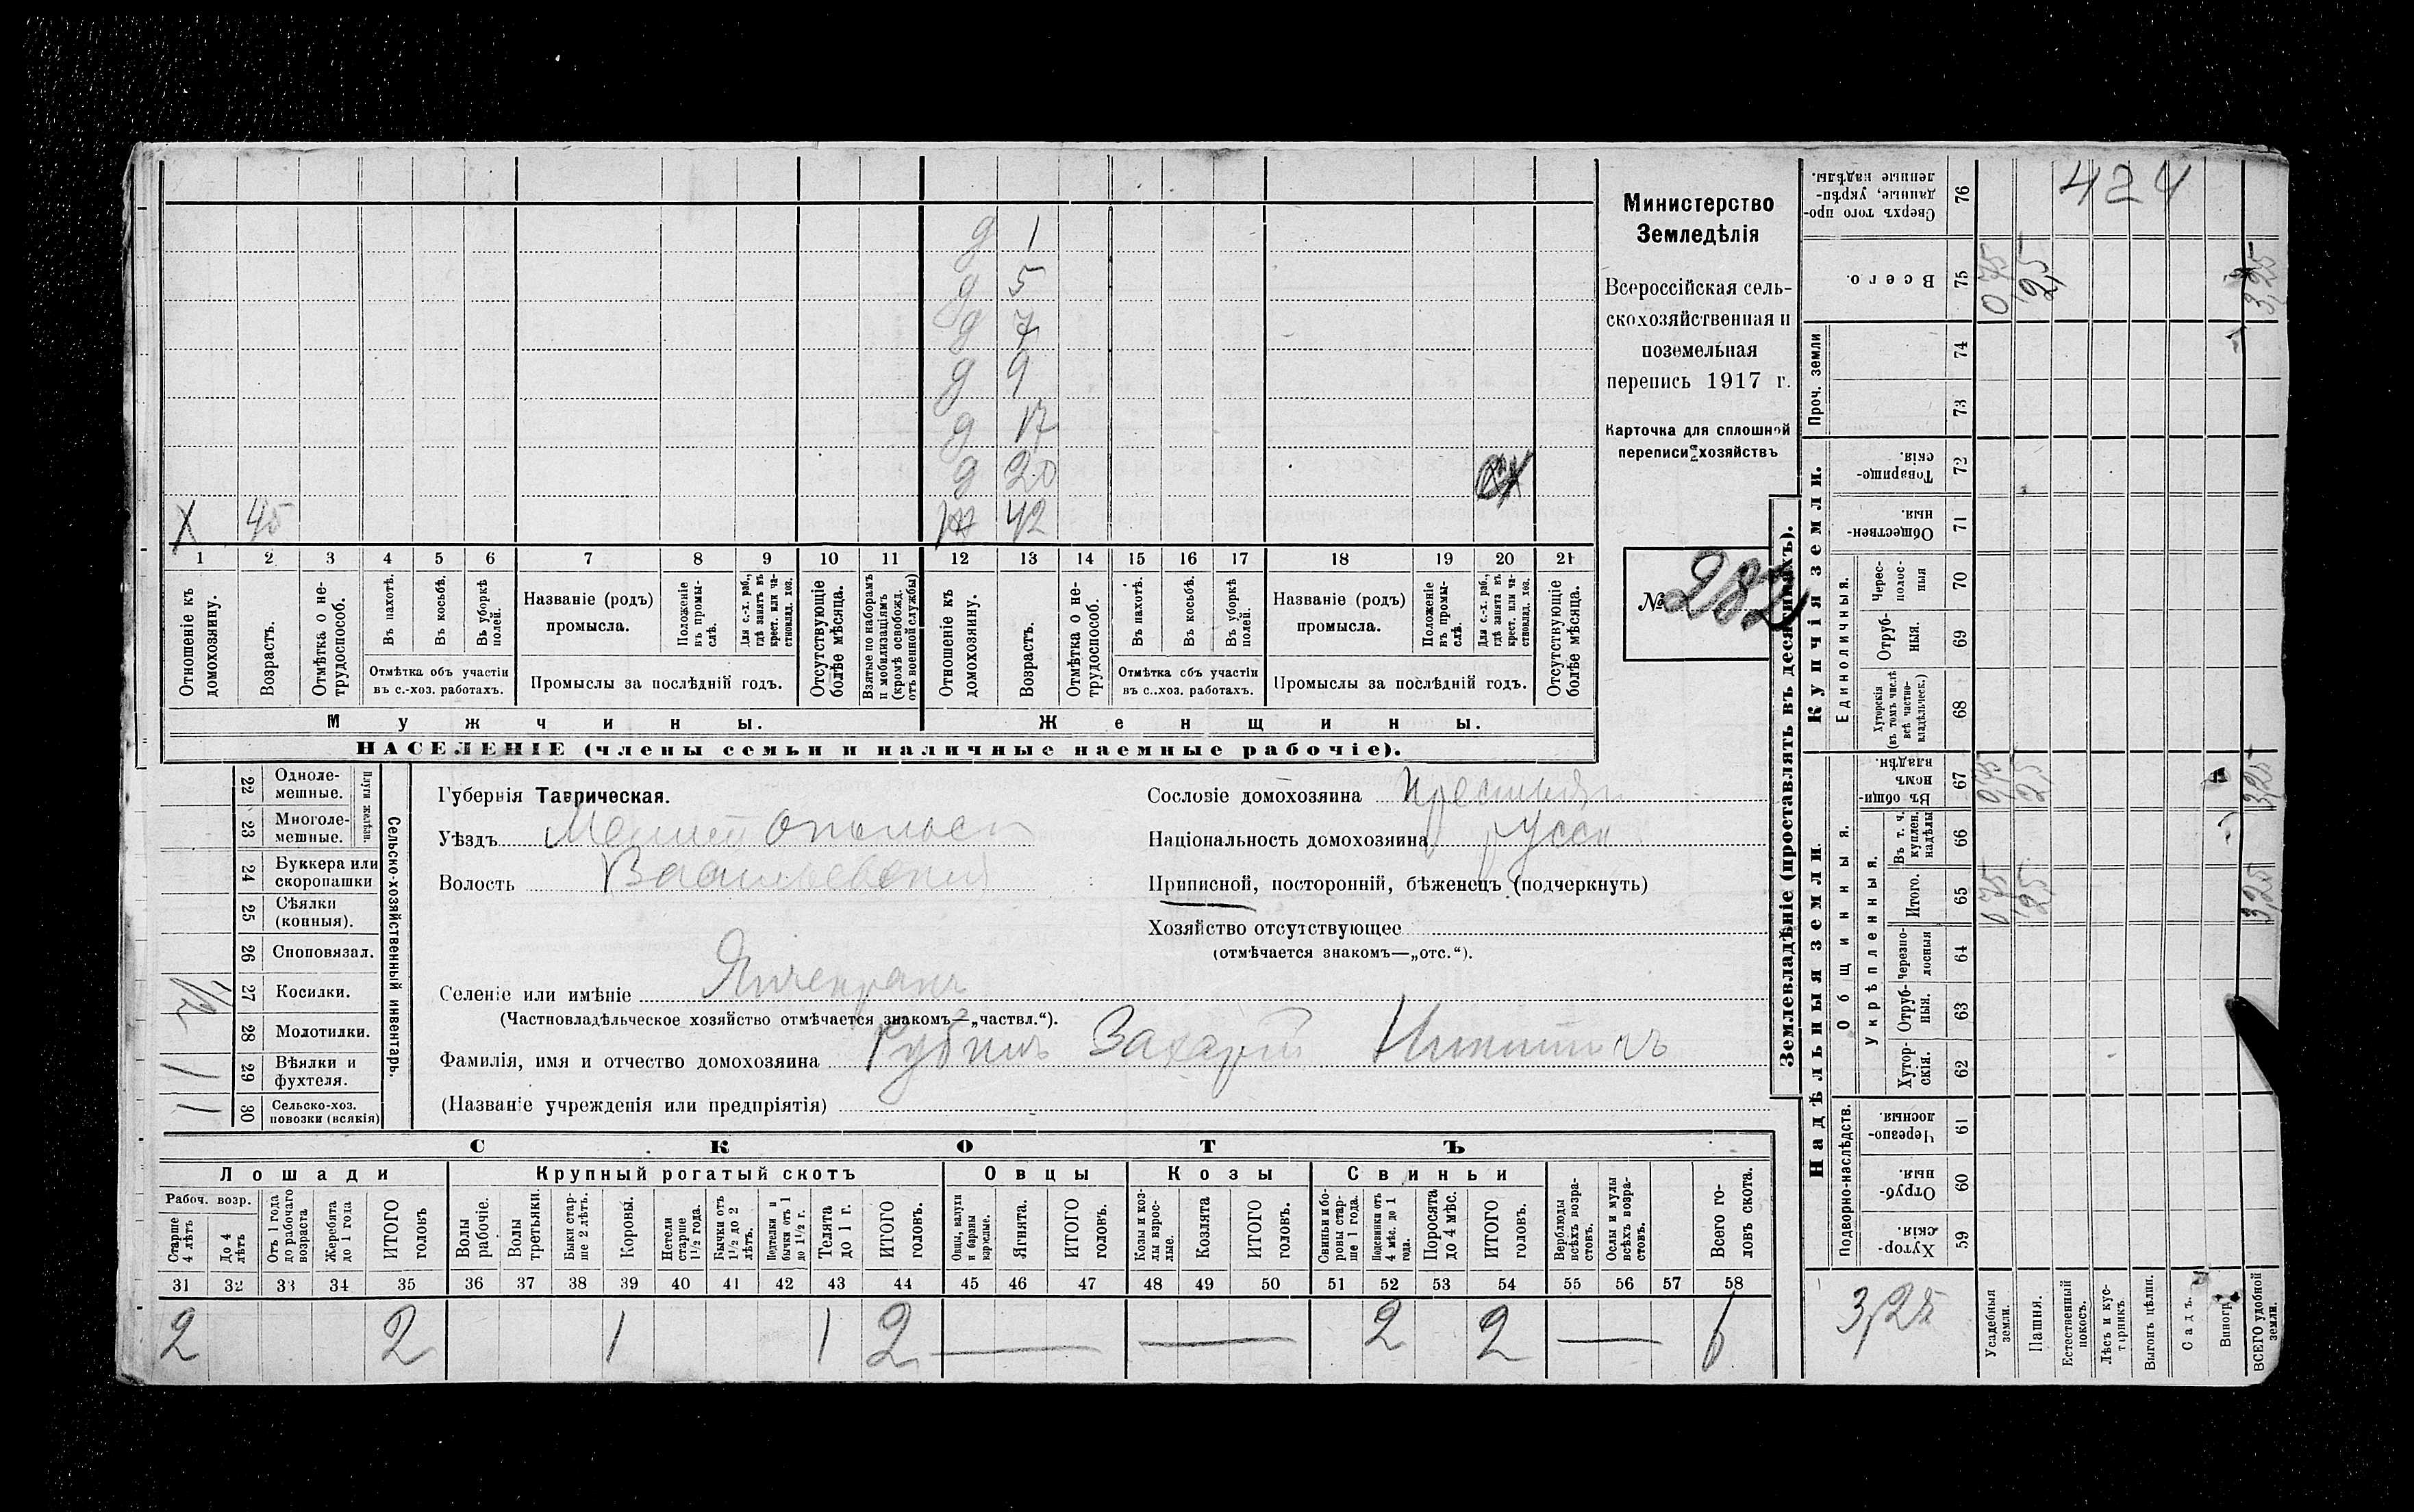 g 1
g 5
g 7
g 9
g 17
g 20
Х 45 42
1 2 3 4 5 6 7 8 9 10 11 12 13 14 15 16 17 18 19 20 21
Отношеніе къ домохозяину.
Возрастъ.
Отмѣтка о не-трудоспособ.
Въ пахотѣ.
Въ косьбѣ.
Въ уборкѣ полей.
Отмѣтка объ участіи
въ с.-хоз. работахъ.
Названіе (родъ)
промысла.
Положеніе въ промы-слѣ.
Для с.-х. раб., гдѣ занятъ въ крест. или ча-стновлад. хоз.
Промыслы за послѣдній годъ.
Отсутствующіе болѣе мѣсяца.
Взятые по наборамъ и мобилизаціямъ (кромѣ освобожд. отъ военной службы)
Отношеніе къ домохозяину.
Возрастъ.
Отмѣтка о не-трудоспособ.
Въ пахотѣ.
Въ косьбѣ.
Въ уборкѣ полей.
Отмѣтка объ участіи
въ с.-хоз. работахъ.
Названіе (родъ)
промысла.
Положеніе въ промы-слѣ.
Для с.-х. раб., гдѣ занята въ крест. или ча-стновлад. хоз.
Промыслы за послѣдній годъ.
Отсутствующіе болѣе мѣсяца.
Мужчины. Женщины.
НАСЕЛЕНІЕ (члены семьи и наличные наемные рабочіе).
Министерство
Земледѣлія
Всероссійская сель-
скохозяйственная и
поземельная
перепись 1917 г.
Карточка для сплошной
переписи хозяйствъ
№ 282
22 Одноле-мешные.
23 Многоле-мешные.
Плуги желѣзн.
24 Буккера или скоропашки
25 Сѣялки (конныя).
26 Сноповязал.
27 Косилки.
28 Молотилки.
29 Вѣялки и фухтеля. 1
30 Сельско-хоз. повозки (всякія) 1
Сельско-хозяйственный инвентарь.
Губернія Таврическая.
Уѣздъ Мелитопольск
Волость Васильевская
Селеніе или имѣніе Янчекракъ
(Частновладѣльческое хозяйство отмѣчается знакомъ—„частвл.“).
Фамилія, имя и отчество домохозяина Рубинъ Захарій Никитичъ
(Названіе учрежденія или предпріятія)
Сословіе домохозяина Крестьян
Національность домохозяина русск
Приписной, посторонній, бѣженецъ (подчеркнуть)
Хозяйство отсутствующее
(отмѣчается знакомъ—„отс.“).
СКОТЪ
Лошади Крупный рогатый скотъ Овцы Козы Свиньи
Рабоч. возр.
Старше 4 лѣтъ
До 4 лѣтъ
Отъ 1 года до рабочаго возраста
Жеребята до 1 года
ИТОГО головъ
Волы рабочіе.
Волы третьяки.
Быки стар-ше 2 лѣтъ.
Коровы.
Нетели старше 1½ года.
Бычки отъ 1½ до 2 лѣтъ.
Подтелки и бычки отъ 1 до 1½ г.
Телята до 1 г.
ИТОГО головъ.
Овцы, валухи и бараны взрослые.
Ягнята.
ИТОГО головъ.
Козы и коз-лы взрос-лые.
Козлята
ИТОГО головъ.
Свиньи и бо-ровы стар-ше 1 года.
Подсвинки отъ 4 мѣс. до 1 года.
Поросята до 4 мѣс.
ИТОГО головъ.
Верблюды всѣхъ возра-стовъ.
Ослы и мулы всѣхъ возра-стовъ.
Всего го-ловъ скота.
31 32 33 34 35 36 37 38 39 40 41 42 43 44 45 46 47 48 49 50 51 52 53 54 55 56 57 58
2 2 1 1 2 — — 2 2 — 6
Землевладѣніе (проставлять въ десятинахъ).
Надѣльныя земли
Купчія земли.
Проч. земли
Общинныя.
Укрѣпленныя.
Единоличныя.
Подворно-наслѣдств.
76 Сверхъ того про-данные, укрѣп-ленные надѣлы.
75 Всего.
74
73
72 Товарище-скія.
71 Обществен-ныя.
70 Черес-полос-ныя
69 Отруб-ныя.
68 Хуторскія (въ томъ числѣ всѣ частно-владѣльческ.)
67 Въ общи-номъ владѣн.
66 Въ т. ч. куплен. надѣлы
65 Итого.
64 Черезпо-лосныя
63 Отруб-ныя.
62 Хутор-скія.
61 Черезпо-лосныя.
60 Отруб-ныя.
59 Хутор-скія.
424
0 75 2,5 3,25
0 75 2,5 3,25
0 75 2,5 3,25
3,25
Усадебныя земли.
Пашня.
Естественный покосъ.
Лѣсъ и кус-тарникъ.
Выгонъ цѣлин.
Садъ.
Виногр.
ВСЕГО удобной земли.